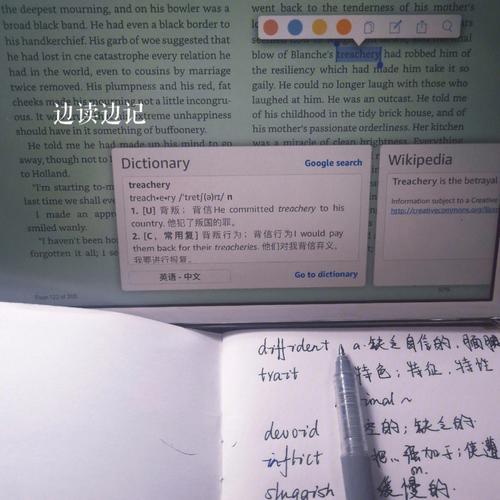 the deepest mourning, and on his bowler was a
broad black band. He had even a black border to
his handkerchief. His garb of woe suggested that
he had lost in one catastrophe every relation he
had in the world, even to cousins by marriage
twice removed. His plumpness and his red, fat
cheeks made his mourning not a little incongru-
ous. It was extreme unhappiness
should have in it something of buffoonery.
He told me he had made up his mind to go
away, though not to
to Holland.
"I'm starting to-m
last time we shall ever
I made an appr
smiled wanly.
"I haven't been ho
forgotten it all; I se
Page 122 of 365
边读边记
went back to the tenderness of his mother's
blow of Blanche's treachery had robbed him of
the resiliency which had made him take it so
gaily. He could no longer laugh with those who
laughed at him. He was an outcast. He told me
of his childhood in the tidy brick house, and of
his mother's passionate orderliness. Her kitchen
was a miracle of clean brightness. Everything
Dictionary
Google search
treachery
treach•e•ry /'tretʃ(ə)rɪ/ n
1. [U] 背叛；背信He committed treachery to his
country. 他犯了叛国的罪。
2. [C, 常用复] 背叛行为；背信行为I would pay
them back for their treacheries. 他们对我背信弃义,
我要进行报复。
英语 - 中文
Go to dictionary
Wikipedia
Treachery is the betrayal
Information subject to a Creative
http://creativecommons.org/licens
diffident a.缺乏自信的,腼腆
trait 特色；特征,特性
devoid 的；缺乏的
inflict 把…强加于；使遭
on.
sluggish 缓慢的.